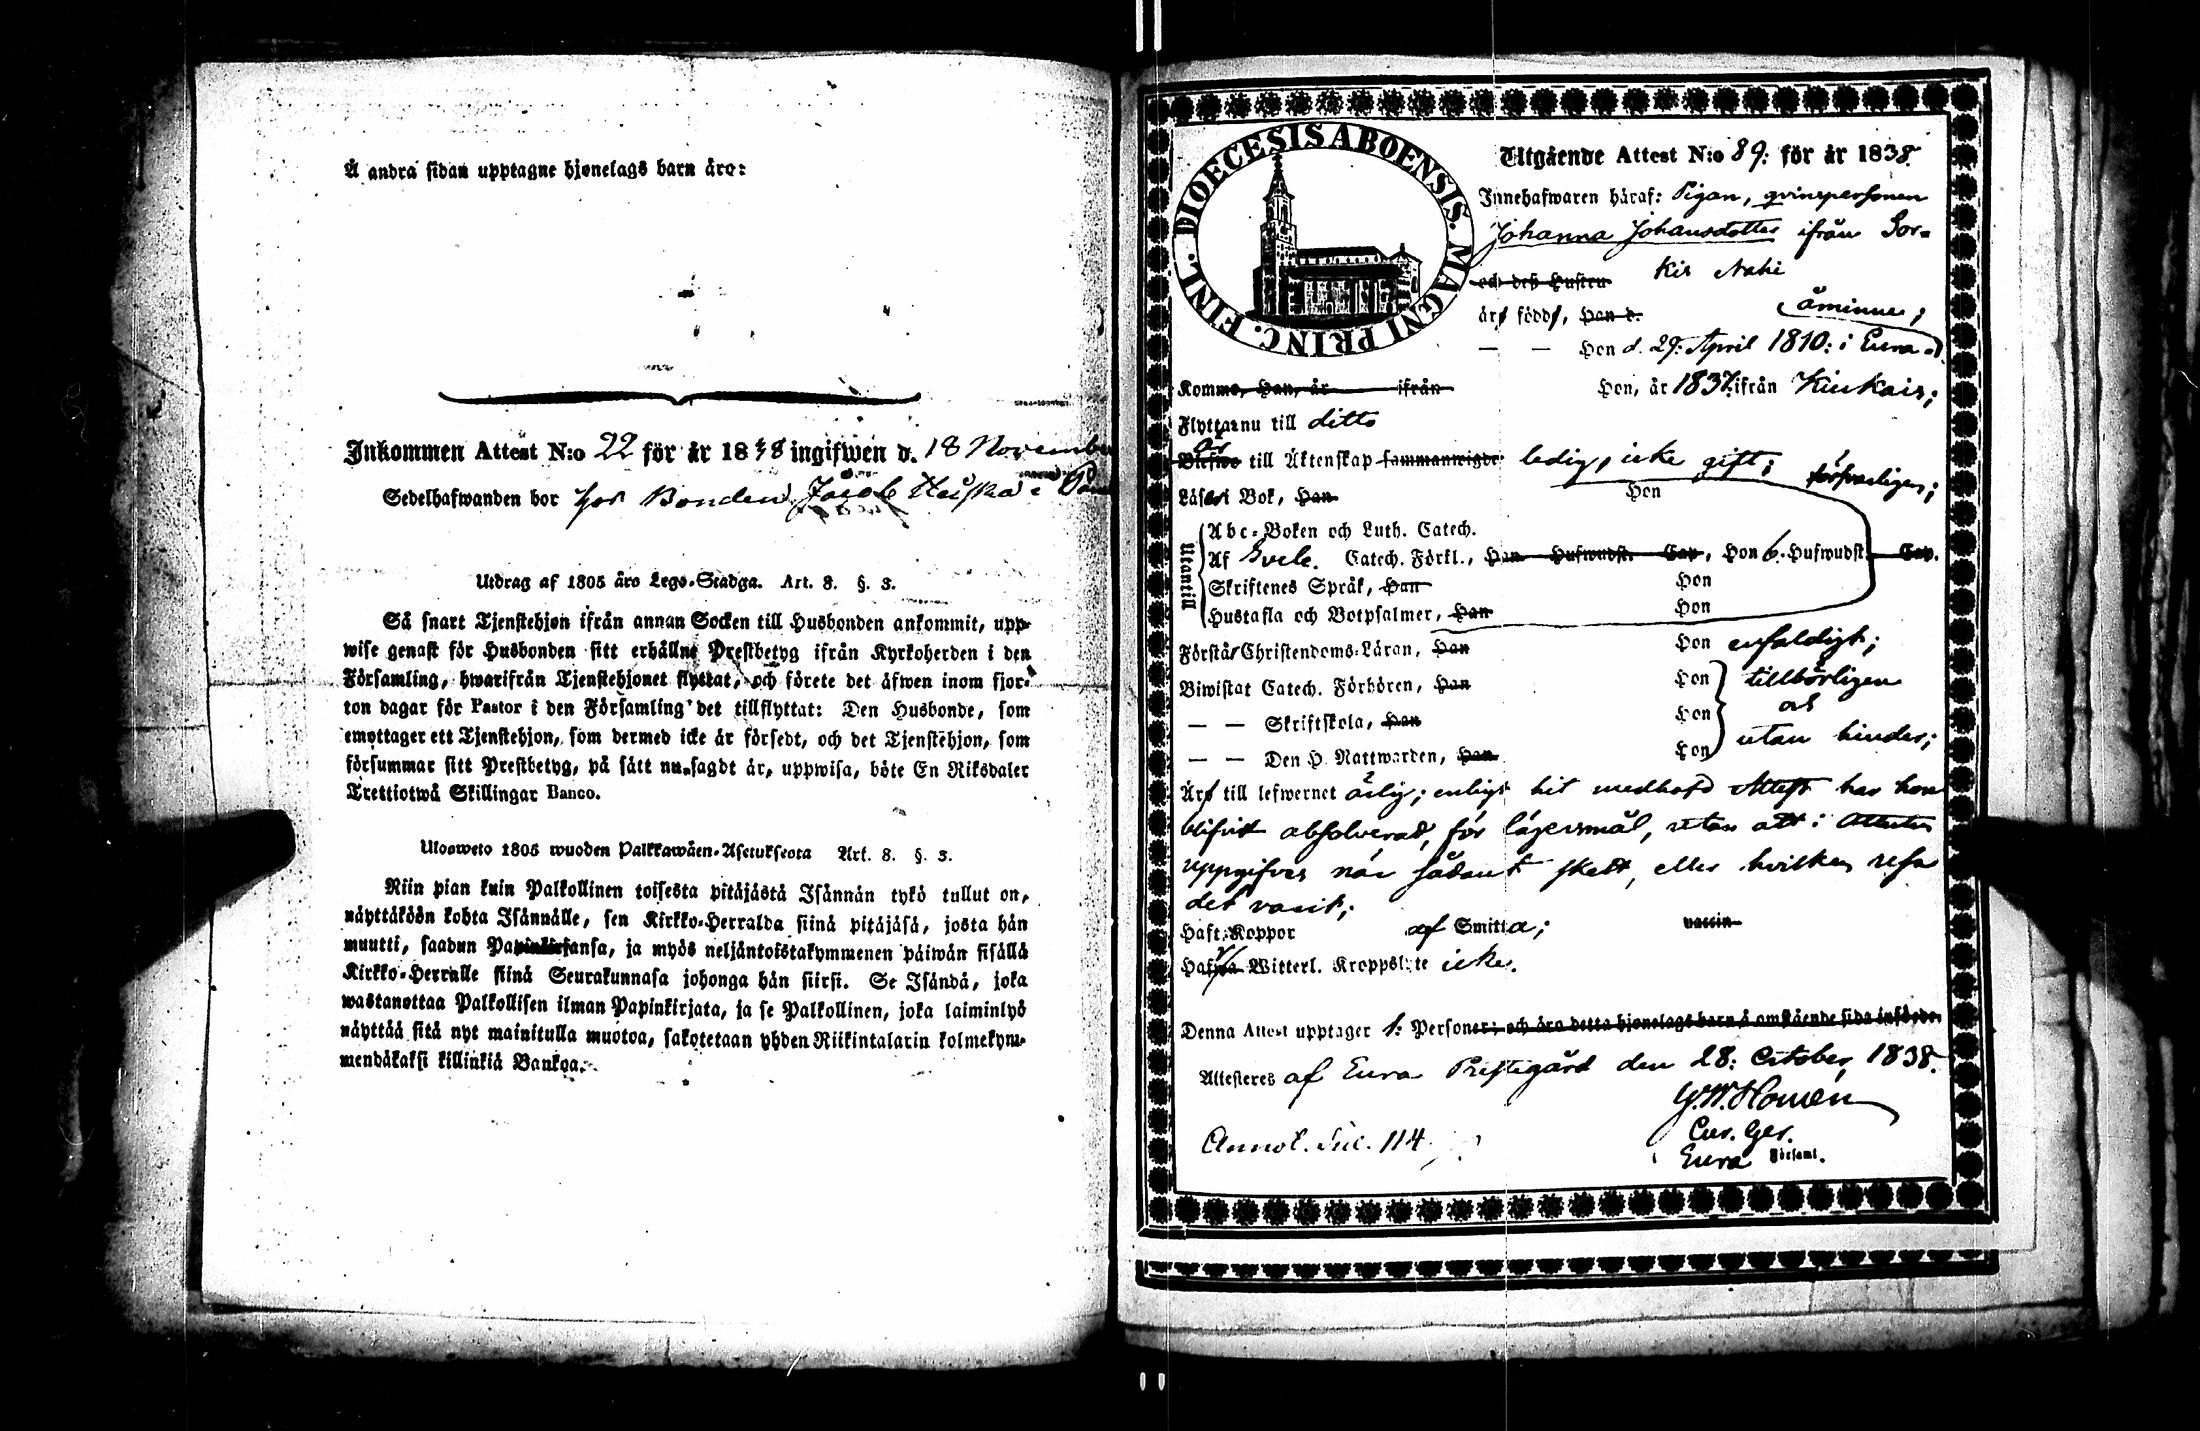 Å andra sidan upptagne hjonelags barn äro:
Inkommen Attest N:o 22 för år 1838 ingifwen d. 18 November
Sedelhafwanden bor hos Bonden Jacob
Utdrag af 1805 års Lego-Stadga. Art. 8. §. 3.
Så snart Tjenstehjon ifrån annan Socken till Husbonden ankommit, upp-
wise genast för Husbonden sitt erhållne Prestbetyg ifrån Kyrkoherden i den
Församling, hwarifrån Tjenstehjonet flyttat, och förete det äfwen inom fjor-
ton dagar för Pastor i den Församling det tillflyttat: Den Husbonde, som
emottager ett Tjenstehjon, som dermed icke är försedt, och det Tjenstehjon, som
försummar sitt Prestbetyg, på sätt nu sagdt är, uppwisa, böte En Riksdaler
Trettiotwå Skillingar Banco.
Ulosweto 1805 wuoden Palkkawäen-Asetuksesta Art. 8. §. 3.
Niin pian kuin Palkollinen toisesta pitäjästä Isännän tykö tullut on,
näyttäköön kohta Isännälle, sen Kirkko-Herralda siinä pitäjäsä, josta hän
muutti, saadun Papinkirjansa, ja myös neljäntoistakymmenen päiwän sisällä
Kirkko-Herralle siinä Seurakunnasa johonga hän siirsi. Se Isändä, joka
wastanottaa Palkollisen ilman Papinkirjata, ja se Palkollinen, joka laiminlyö
näyttää sitä nyt mainitulla muotoa, sakotetaan yhden Riikintalarin kolmekym-
mendäkaksi killinkiä Bankoa.
DIOECESIS ABOENSIS. MAGNI PRINC. FINL.
Utgående Attest N:o 89: för år 1838.
Innehafwaren häraf: Pigan, qvinspersonen
Johanna Johansdotter ifrån Sor-
och dess Hustru kis Nahi
åminne;
äro födde, Han d.
— — Hon d. 29. April 1810: i Eura
Komne, Han, år ifrån Hon, år 1837. ifrån Kiukais;
Flyttar nu till ditto
är
Blefwo till Äktenskap sammanwigde ledig, icke gift;
Läser i Bok, Han Hon försvarligen;
Utantill
Abc-Boken och Luth. Catech.
Af Sveb. Catech. Förkl., Han Hufwudst. Cap, Hon 6. Hufwudst. Cap.
Skriftenes Språk, Han Hon
Hustafla och Botpsalmer, Han Hon
Förstår Christendoms-Läran, Han Hon enfaldigt;
Biwistat Catech. Förhören, Han Hon tillbörligen
— — Skriftskola, Han Hon och
— — Den H. Nattwarden, Han Hon utan hinder;
Är till lefwernet ärlig; enligt hit medhafd Attest har hon
blifvit absolverad, för lägersmål, utan att i Attesten
uppgifves när sådant skett, eller hvilken resa
det varit;
Haft Koppor af Smitta; vaccin
Hafwa Witterl. Kroppslyte icke.
Denna Attest upptager 1: Personer; och äro detta hjonelags barn å omstående sida införde.
Attesteres af Eura Prestegård den 28: October 1838.
G.W. Homén
Cur. Ger.
Eura Församl.
Annot. Sid. 114